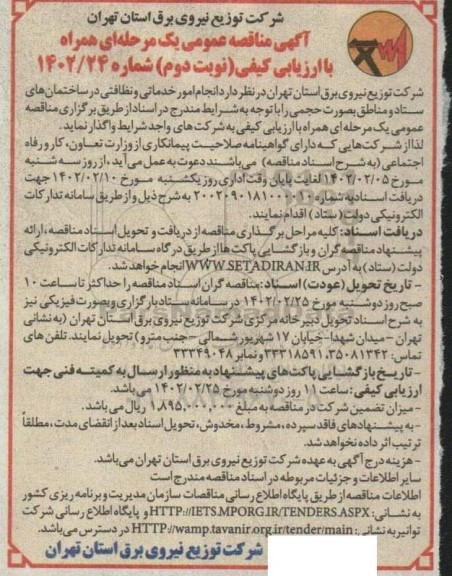 شرکت توزیع نیروی برق استان تهران
آگهی مناقصه عمومی یک مرحله‌ای همراه
با ارزیابی کیفی (نوبت دوم) شماره ۱۴۰۲/۲۴
شرکت توزیع نیروی برق استان تهران در نظر دارد انجام امور خدماتی و نظافتی در ساختمان‌های
ستاد و مناطق بصورت حجمی را با توجه به شرایط مندرج در اسناد از طریق برگزاری مناقصه
عمومی یک مرحله‌ای همراه با ارزیابی کیفی به شرکت‌های واجد شرایط واگذار نماید.
لذا از شرکت‌هایی که دارای گواهینامه صلاحیت پیمانکاری از وزارت تعاون، کار و رفاه
اجتماعی (به شرح اسناد مناقصه) می‌باشند دعوت به عمل می‌آید، از روز سه شنبه
مورخ ۱۴۰۲/۰۲/۰۵ لغایت پایان وقت اداری روز یکشنبه مورخ ۱۴۰۲/۰۲/۱۰ جهت
دریافت اسناد به شماره ۲۰۰۲۰۹۰۱۸۱۰۰۰۰۰۱ به شرح ذیل و از طریق سامانه تدارکات
الکترونیکی دولت (ستاد) اقدام نمایند.
دریافت اسناد: کلیه مراحل برگذاری مناقصه از دریافت و تحویل اسناد مناقصه، ارائه
پیشنهاد مناقصه گران و بازگشایی پاکت‌ها از طریق درگاه سامانه تدارکات الکترونیکی
دولت (ستاد) به آدرس WWW.SETADIRAN.IR انجام خواهد شد.
- تاریخ تحویل (عودت) اسناد: مناقصه گران اسناد مناقصه را حداکثر تا ساعت ۱۰
صبح روز دوشنبه مورخ ۱۴۰۲/۰۲/۲۵ در سامانه ستاد بارگزاری و بصورت فیزیکی نیز
به شرح اسناد تحویل دبیرخانه مرکزی شرکت توزیع نیروی برق استان تهران (به نشانی
تهران - میدان شهدا - خیابان ۱۷ شهریور شمالی - جنب مترو) تحویل نمایند. تلفن های
تماس: ۳۵۰۸۱۳۴۲، ۳۳۳۱۸۵۹۱ و نمابر ۳۳۳۴۹۰۴۸
- تاریخ بازگشایی پاکت‌های پیشنهاد به منظور ارسال به کمیته فنی جهت
ارزیابی کیفی: ساعت ۱۱ روز دوشنبه مورخ ۱۴۰۲/۰۲/۲۵ می باشد.
- میزان تضمین شرکت در مناقصه به مبلغ ۱,۸۹۵,۰۰۰,۰۰۰ ریال می باشد.
- به پیشنهادهای فاقد سپرده، مشروط، مخدوش، تحویل اسناد بعد از انقضای مدت، مطلقاً
ترتیب اثر داده نخواهد شد.
- هزینه درج آگهی به عهده شرکت توزیع نیروی برق استان تهران می‌باشد.
سایر اطلاعات و جزئیات مربوطه در اسناد مناقصه مندرج است
اطلاعات مناقصه از طریق پایگاه اطلاع رسانی مناقصات سازمان مدیریت و برنامه ریزی کشور
به نشانی: HTTP://IETS.MPORG.IR/TENDERS.ASPX و پایگاه اطلاع رسانی شرکت
توانیر به نشانی: HTTP://wamp.tavanir.org.ir/tender/main در دسترس می‌باشد.
شرکت توزیع نیروی برق استان تهران